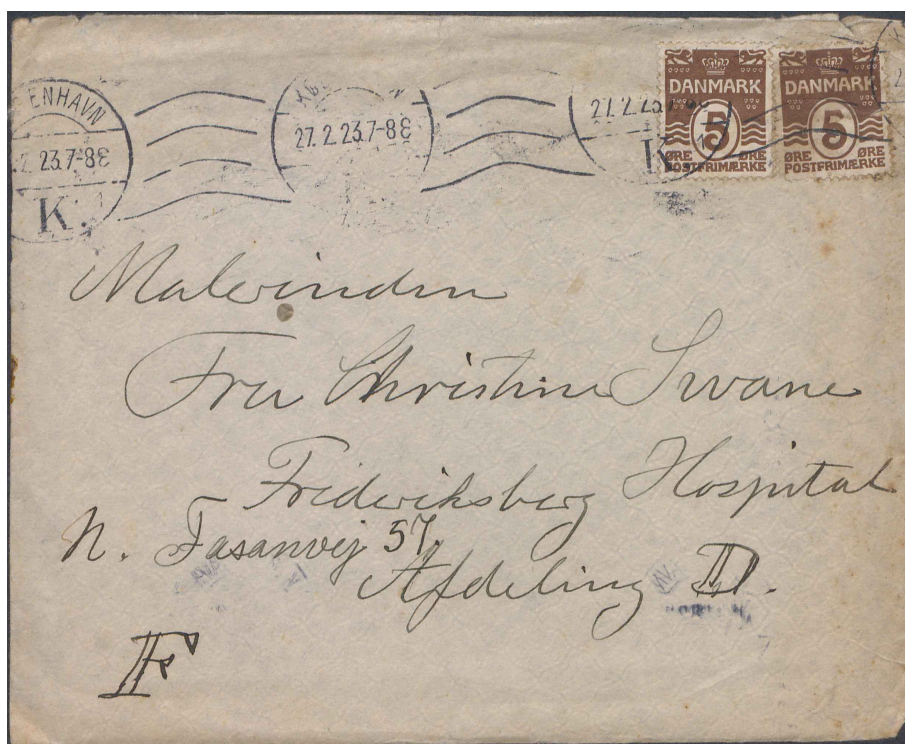 ENHAVN
2. 23.7-8E
K.
27. 2. 23.7-8E
27. 2. 23.
K
DANMARK
5
ØRE ØRE
POSTFRIMÆRKE
DANMARK
5
ØRE ØRE
POSTFRIMÆRKE
Malerinden
Fru Christine Swane
Frederiksberg Hospital
N. Fasanvej 57.
Afdeling D.
F